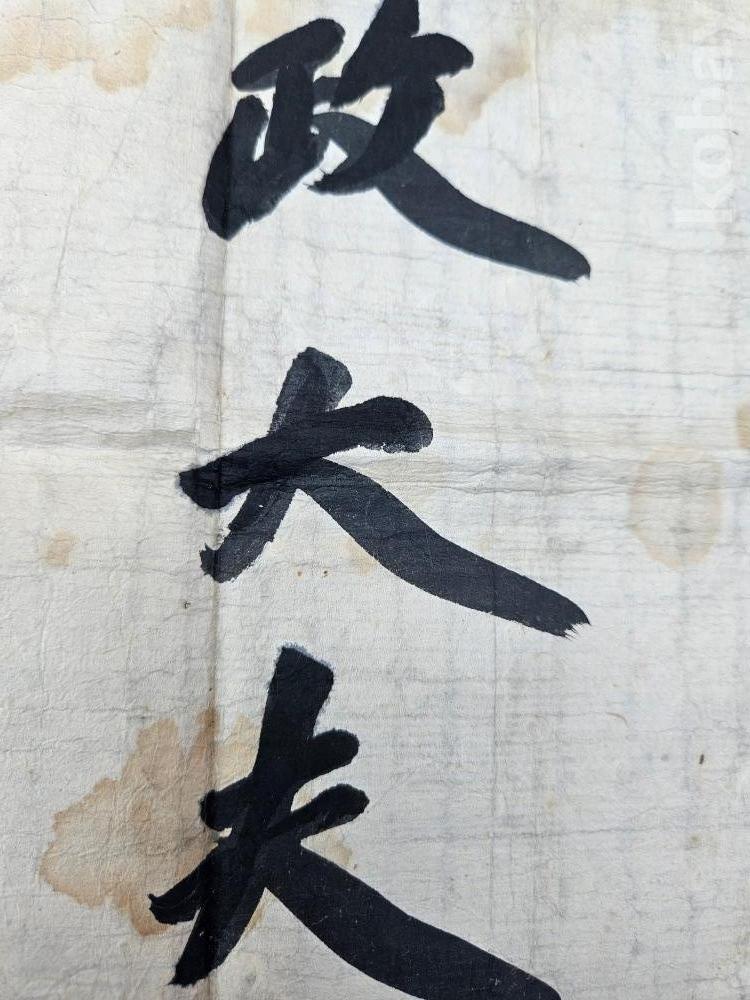 政大夫
kobay